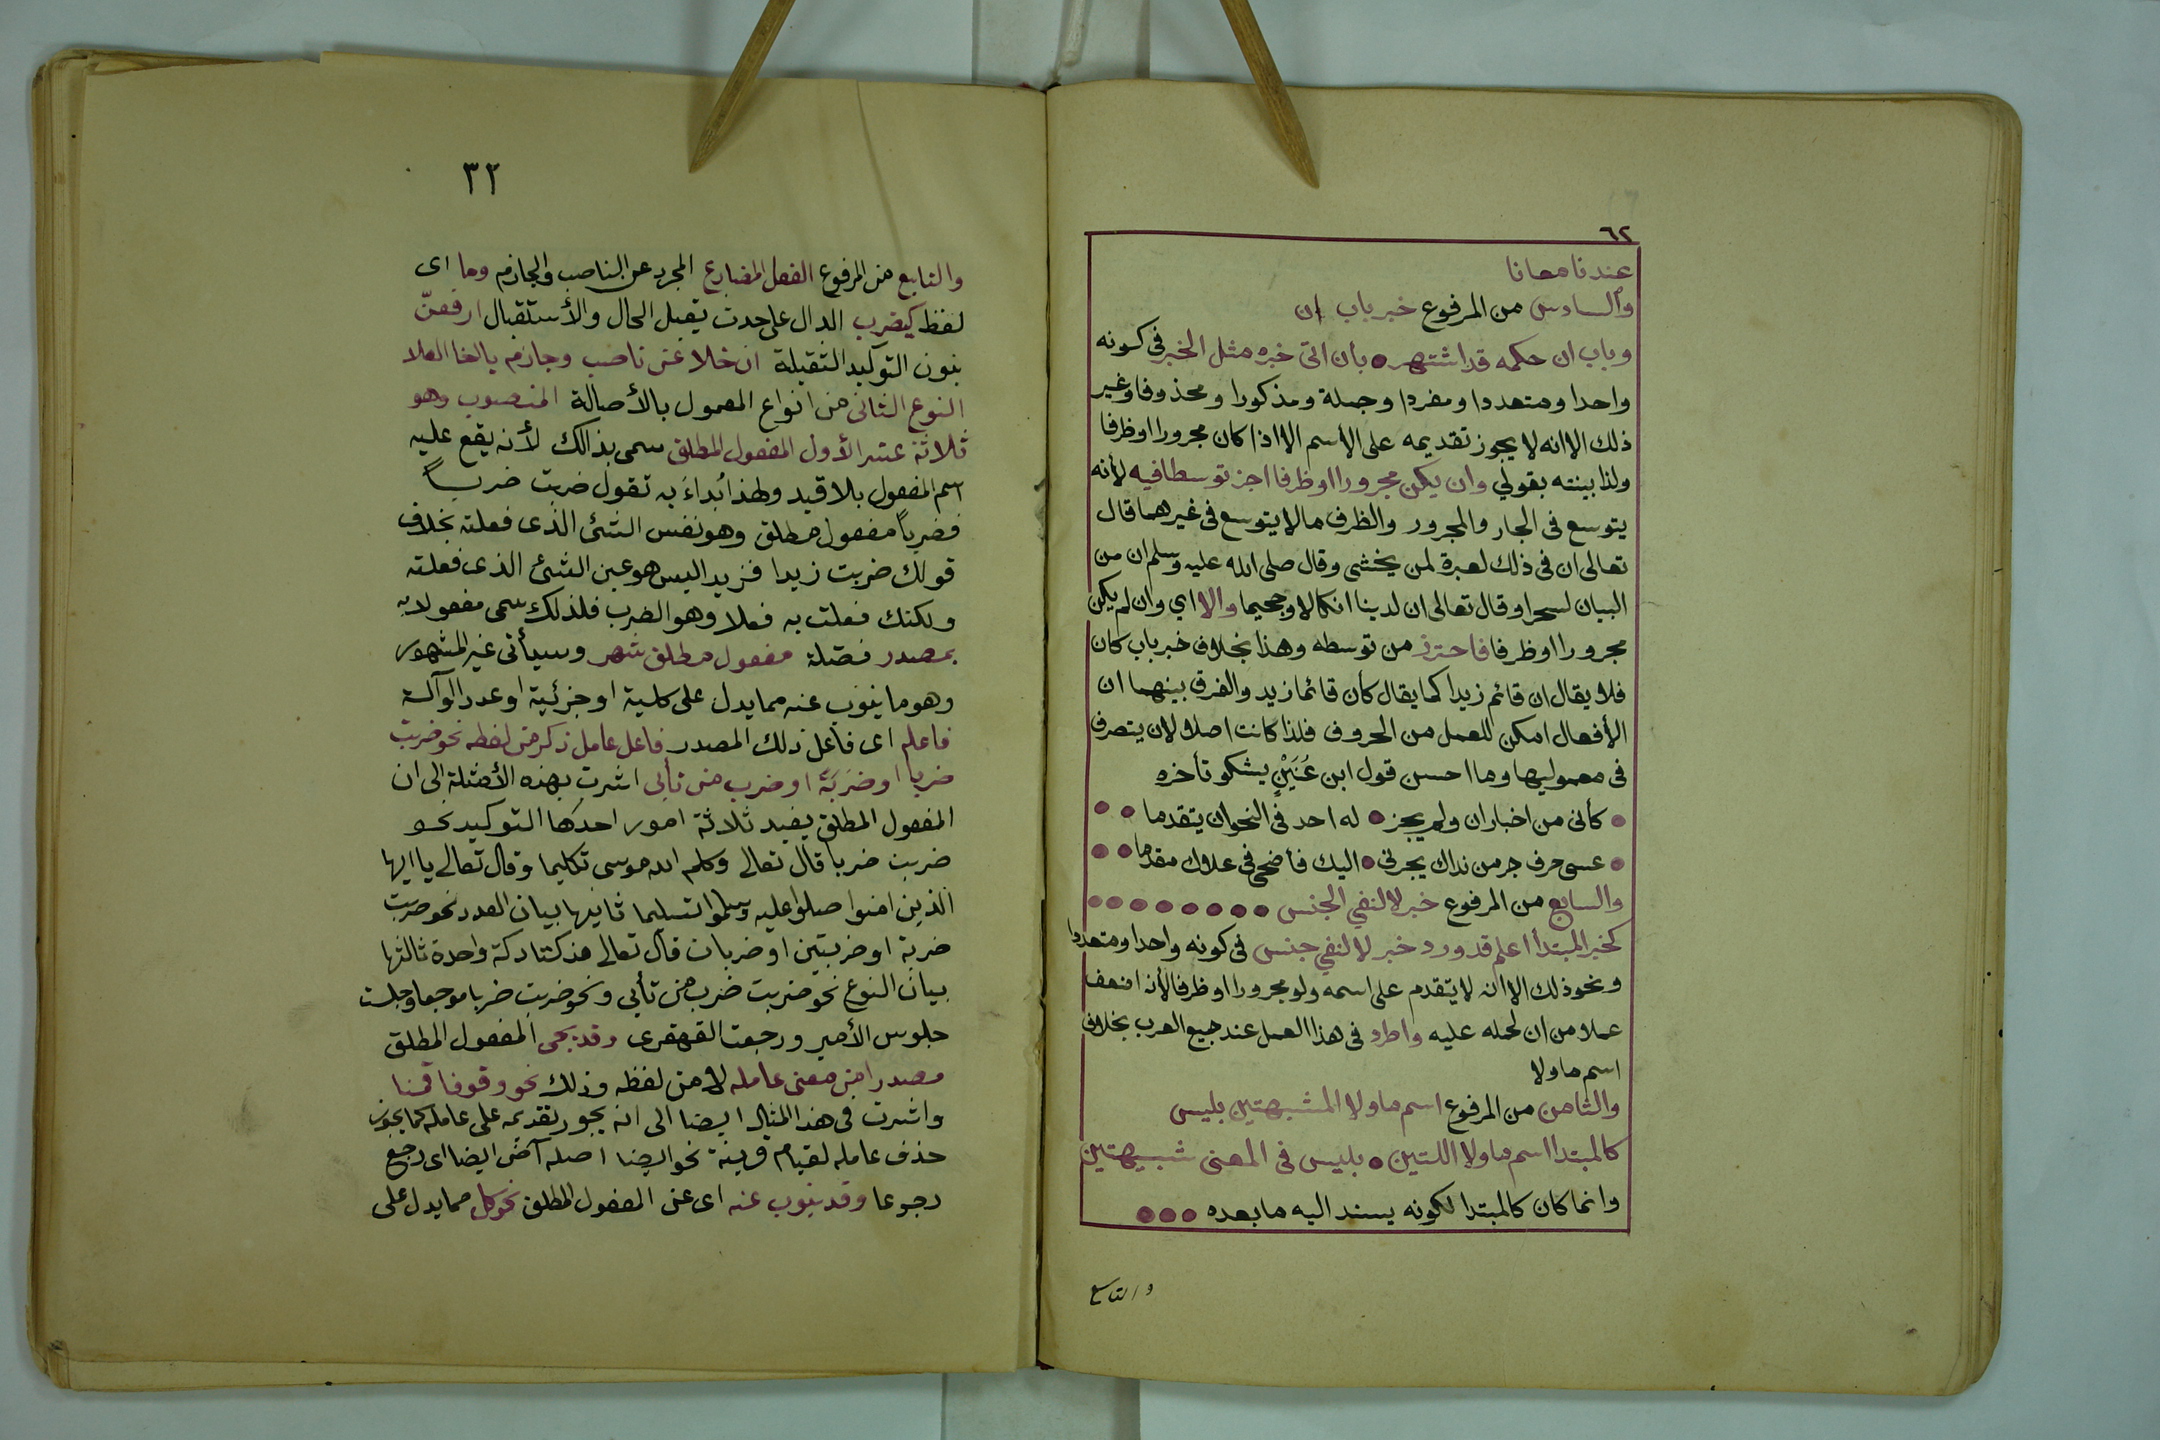 ٦٢
عندنا معانا
والسادس من المرفوع خبر باب ان
وباب ان حكمه قد اشتهر • بأن اتى خبره مثل الخبر فى كونه
واحدا ومتعددا ومفردا وجملة ومذكورا ومحذوفا وغير
ذلك الا انه لا يجوز تقديمه على الاسم الا اذا كان مجرورا او ظرفا
ولذا بينته بقولي وان يكن مجرورا او ظرفا اجز توسطا فيه لأنه
يتوسع فى الجار والمجرور والظرف مالا يتوسع فى غيرهما قال
تعالى ان فى ذلك لعبرة لمن يخشى وقال صلى الله عليه وسلم ان من
البيان لسحرا وقال تعالى ان لدينا انكالا وجحيما والا اي وان لم يكن
مجرورا او ظرفا فاحترز من توسطه وهذا بخلاف خبر باب كان
فلا يقال ان قائم زيدا كما يقال كان قائما زيد والفرق بينهما ان
الأفعال امكن للعمل من الحروف فلذا كانت اصلا لان يتصرف
فى معموليها وما احسن قول ابن عُنَيْنٍ يشكو تأخره
• كأنى من اخبار ان ولم يجز • له احد فى النحو ان يتقدما • •
• عسى حرف جر من نداك يجرنى • اليك فأضحى فى علاك مقدما • •
والسابع من المرفوع خبر لا لنفي الجنس • • • • • • • •
كخبر المبتدأ اعلم قد ورد خبر لا لنفي جنس فى كونه واحدا ومتعددا
ونحو ذلك الا انه لا يتقدم على اسمه ولو مجرورا او ظرفا لأنه اضعف
عملا من ان لحمله عليه واطرد فى هذا العمل عند جميع العرب بخلاف
اسم ما ولا
والثامن من المرفوع اسم ما ولا المشبهتين بليس
كالمبتدا اسم ما ولا اللتين • بليس فى المعنى شبيهتين
وانما كان كالمبتدا لكونه يسند اليه ما بعده • • •
والتاسع
٣٢
والتابع من المرفوع الفعل المضارع المجرد عن الناصب والجازم وما اى
لفظ كيضرب الدال على حدث يقبل الحال والأستقبال ارفعنّ
بنون التوكيد الثقيلة ان خلا عن ناصب وجازم يا لغا العلا
النوع الثانى من انواع المعمول بالأصالة المنصوب وهو
ثلاثة عشر الأول المفعول المطلق سمى بذالك لأنه يقع عليه
اسم المفعول بلا قيد ولهذا بُداءَ به تقول ضربت ضرباً
فضرباً مفعول مطلق وهو نفس الشئ الذى فعلته بخلاف
قولك ضربت زيدا فزيد اليس هو عين الشئ الذى فعلته
ولكنك فعلت به فعلا وهو الضرب فلذلك سمى مفعولا به
بمصدر فضلة مفعول مطلق شهر وسيأتى غير المشهور
وهو ما ينوب عنه مما يدل على كلية او جزئية او عدد او آلة
فاعلم اى فاعل ذلك المصدر فاعل عامل ذكر من لفظه نحو ضربت
ضربا او ضربَةً او ضرب من تأبى اشرت بهذه الأمثلة الى ان
المفعول المطلق يفيد ثلاثة امور احدها التوكيد نحو
ضربت ضربا قال تعالى وكلم الله موسى تكليما وقال تعالى يا ايها
الذين امنوا صلوا عليه وسلموا تسليما ثانيها بيان العدد نحو ضربت
ضربة او ضربتين او ضربات قال تعالى فدكتا دكة واحدة ثالثها
بيان النوع نحو ضربت ضرب من تأبى ونحو ضربت ضربا موجعا وجلست
جلوس الأمير ورجعت القهقرى وقد يجى المفعول المطلق
مصدرا من معنى عامله لا من لفظه وذلك نحو وقوفا قمنا
واشرت فى هذا المثال ايضا الى انه يجوز تقديمه على عامله كما يجوز
حذف عامله لقيام قرينة نحو ايضا اصله آض ايضا اى رجع
رجوعا وقد ينوب عنه اى عن المفعول المطلق نحو كل مما يدل على